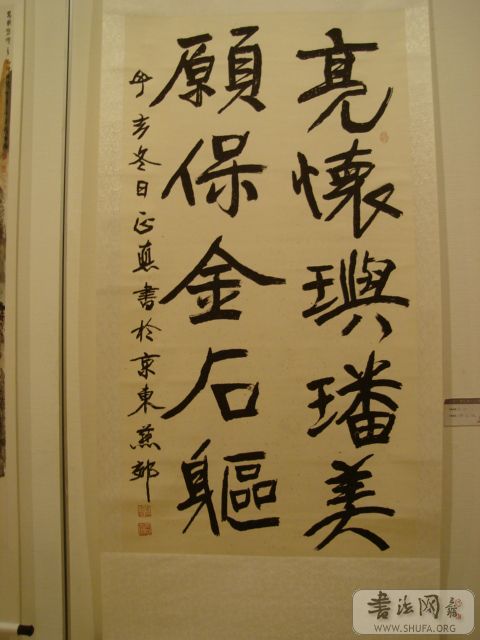 亮懷璵璠美
願保金石軀
辛亥冬日正燕書於京東燕郊
書法网
WWW.SHUFA.ORG